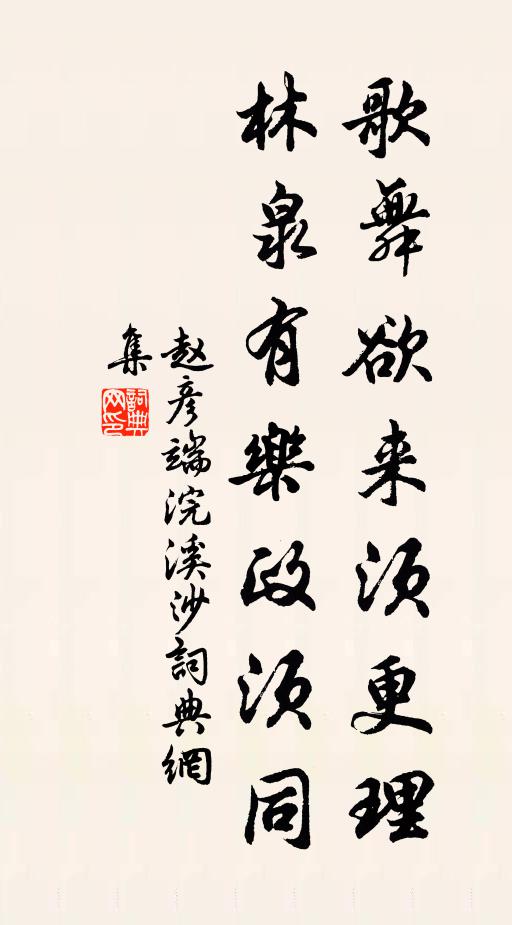 歌舞欲来须更理
林泉有樂政须同
赵彦端浣溪沙詞典網
集
詞典
网印